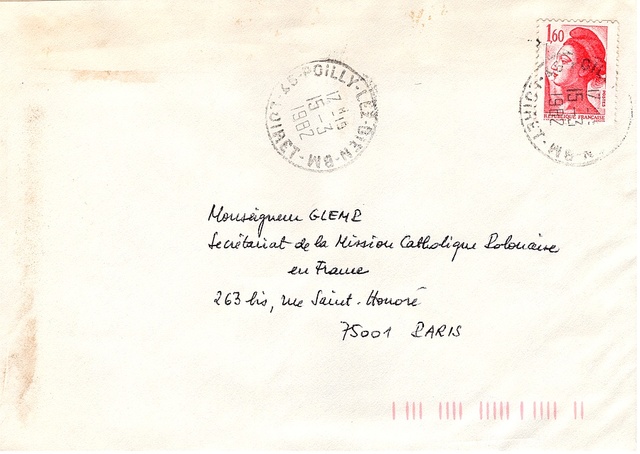 1,60
RÉPUBLIQUE FRANÇAISE
45-POILLY-LEZ-GIEN-BM
17 H 15
15-3
1982
17
15-3
1982
BM
Monseigneur GLEMP
Secrétariat de la Mission Catholique Polonaise
en France
263 bis, rue Saint-Honoré
75001 PARIS